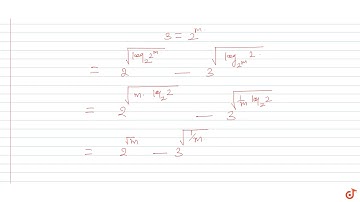 3 = 2^m
= 2^√(log_2 2^m) — 3^√(log_{2^m} 2)
= 2^√(m · log_2 2) — 3^√(1/m log_2 2)
= 2^√m — 3^√(1/m)